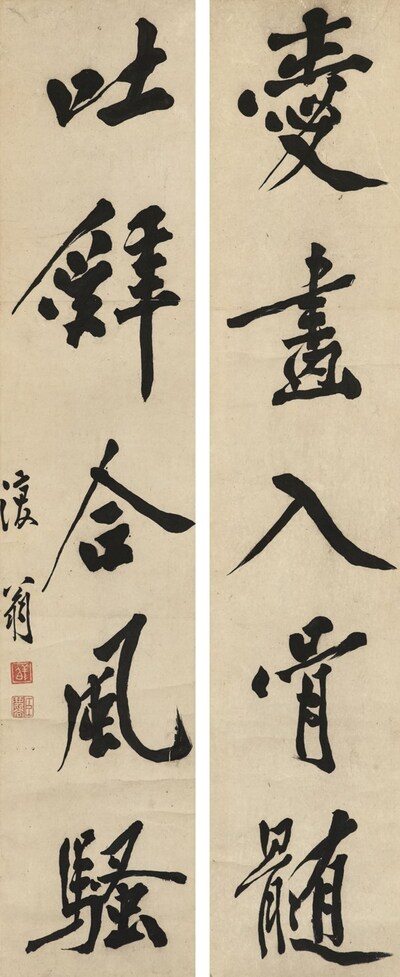 愛畫入骨髓
吐辭合風騷
翁